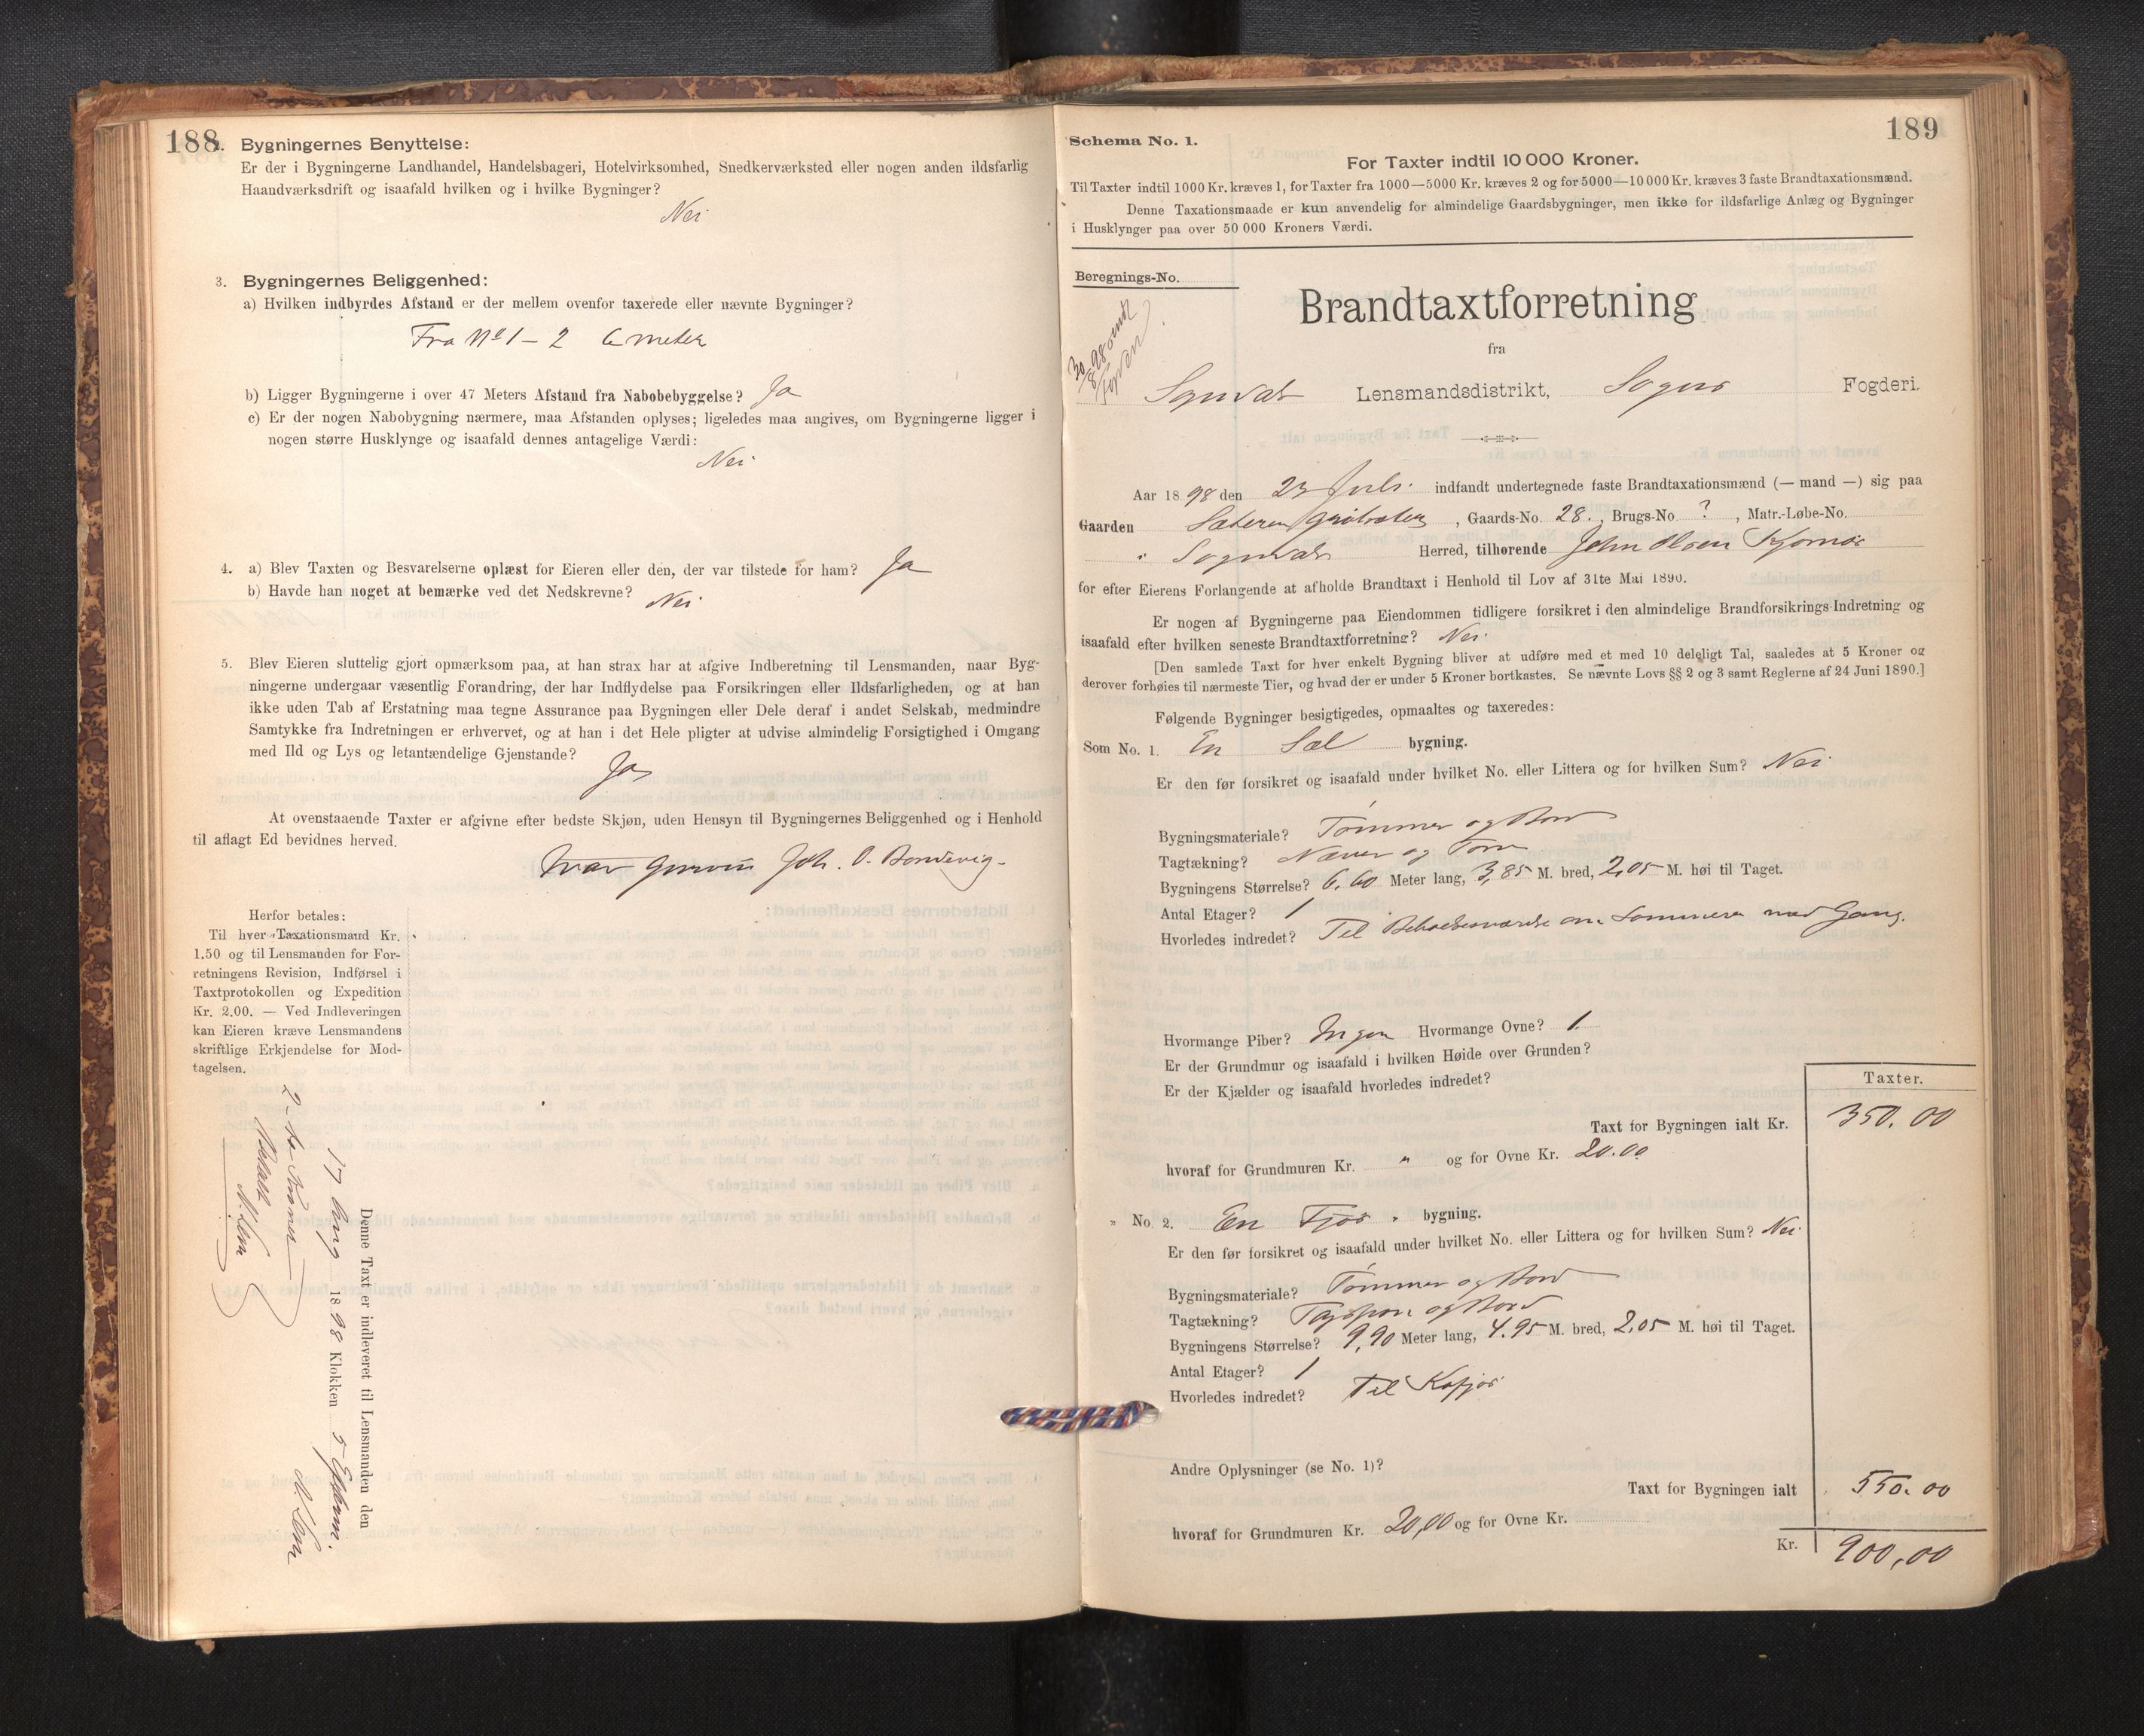 188
2. Bygningernes Benyttelse:
Er der i Bygningerne Landhandel, Handelsbageri, Hotelvirksomhed, Snedkerværksted eller nogen anden ildsfarlig
Haandværksdrift og isaafald hvilken og i hvilke Bygninger?
Nei
3. Bygningernes Beliggenhed:
a) Hvilken indbyrdes Afstand er der mellem ovenfor taxerede eller nævnte Bygninger?
Fra No 1 - 2 6 meter
b) Ligger Bygningerne i over 47 Meters Afstand fra Nabobebyggelse? Ja
c) Er der nogen Nabobygning nærmere, maa Afstanden oplyses; ligeledes maa angives, om Bygningerne ligger i
nogen større Husklynge og isaafald dennes antagelige Værdi:
Nei
4. a) Blev Taxten og Besvarelserne oplæst for Eieren eller den, der var tilstede for ham? Ja
b) Havde han noget at bemærke ved det Nedskrevne? Nei
5. Blev Eieren sluttelig gjort opmærksom paa, at han strax har at afgive Indberetning til Lensmanden, naar Byg-
ningerne undergaar væsentlig Forandring, der har Indflydelse paa Forsikringen eller Ildsfarligheden, og at han
ikke uden Tab af Erstatning maa tegne Assurance paa Bygningen eller Dele deraf i andet Selskab, medmindre
Samtykke fra Indretningen er erhvervet, og at han i det Hele pligter at udvise almindelig Forsigtighed i Omgang
med Ild og Lys og letantændelige Gjenstande?
Ja
At ovenstaaende Taxter er afgivne efter bedste Skjøn, uden Hensyn til Bygningernes Beliggenhed og i Henhold
til aflagt Ed bevidnes herved.
Ivar Joh. O. Bondevig
Herfor betales:
Til hver Taxationsmand Kr.
1.50 og til Lensmanden for For-
retningens Revision, Indførsel i
Taxtprotokollen og Expedition
Kr. 2.00. — Ved Indleveringen
kan Eieren kræve Lensmandens
skriftlige Erkjendelse for Mod-
tagelsen.
Denne Taxt er indleveret til Lensmanden den
17 Aug 1898 Klokken 5 Efterm.
2 - to Kroner
Betalt
189
Schema No. 1.
For Taxter indtil 10 000 Kroner.
Til Taxter indtil 1000 Kr. kræves 1, for Taxter fra 1000—5000 Kr. kræves 2 og for 5000—10 000 Kr. kræves 3 faste Brandtaxationsmænd.
Denne Taxationsmaade er kun anvendelig for almindelige Gaardsbygninger, men ikke for ildsfarlige Anlæg og Bygninger
i Husklynger paa over 50 000 Kroners Værdi.
Beregnings-No.
30/8 98
Brandtaxtforretning
fra
Sogndal Lensmandsdistrikt, Sogns Fogderi.
Aar 1898 den 23 Juli indfandt undertegnede faste Brandtaxationsmænd (— mand —) sig paa
Gaarden , Gaards-No. 28., Brugs-No. ?, Matr.-Løbe-No.
i Sogndal Herred, tilhørende John Olsen
for efter Eierens Forlangende at afholde Brandtaxt i Henhold til Lov af 31te Mai 1890.
Er nogen af Bygningerne paa Eiendommen tidligere forsikret i den almindelige Brandforsikrings-Indretning og
isaafald efter hvilken seneste Brandtaxtforretning? Nei
[Den samlede Taxt for hver enkelt Bygning bliver at udføre med et med 10 deleligt Tal, saaledes at 5 Kroner og
derover forhøies til nærmeste Tier, og hvad der er under 5 Kroner bortkastes. Se nævnte Lovs §§ 2 og 3 samt Reglerne af 24 Juni 1890.]
Følgende Bygninger besigtigedes, opmaaltes og taxeredes:
Som No. 1. En Sel bygning.
Er den før forsikret og isaafald under hvilket No. eller Littera og for hvilken Sum? Nei
Bygningsmateriale? Tømmer og Bord
Tagtækning? Næver og Torv
Bygningens Størrelse? 6,60 Meter lang, 3,85 M. bred, 2,05 M. høi til Taget.
Antal Etager? 1
Hvorledes indredet? Til Beboelsesværelse om Sommeren med Gang.
Hvormange Piber? Ingen Hvormange Ovne? 1.
Er der Grundmur og isaafald i hvilken Høide over Grunden?
Er der Kjælder og isaafald hvorledes indredet?
Taxter.
Taxt for Bygningen ialt Kr. 350.00
hvoraf for Grundmuren Kr. " og for Ovne Kr. 20.00
" No. 2. En Fjøs bygning.
Er den før forsikret og isaafald under hvilket No. eller Littera og for hvilken Sum? Nei
Bygningsmateriale? Tømmer og Bord
Tagtækning? Tagspon og Bord
Bygningens Størrelse? 9,90 Meter lang, 4.95 M. bred, 2,05 M. høi til Taget.
Antal Etager? 1
Hvorledes indredet? Til Kofjøs
Andre Oplysninger (se No. 1)?
Taxt for Bygningen ialt 550.00
hvoraf for Grundmuren Kr. 20,00 og for Ovne Kr.
Kr. 900,00